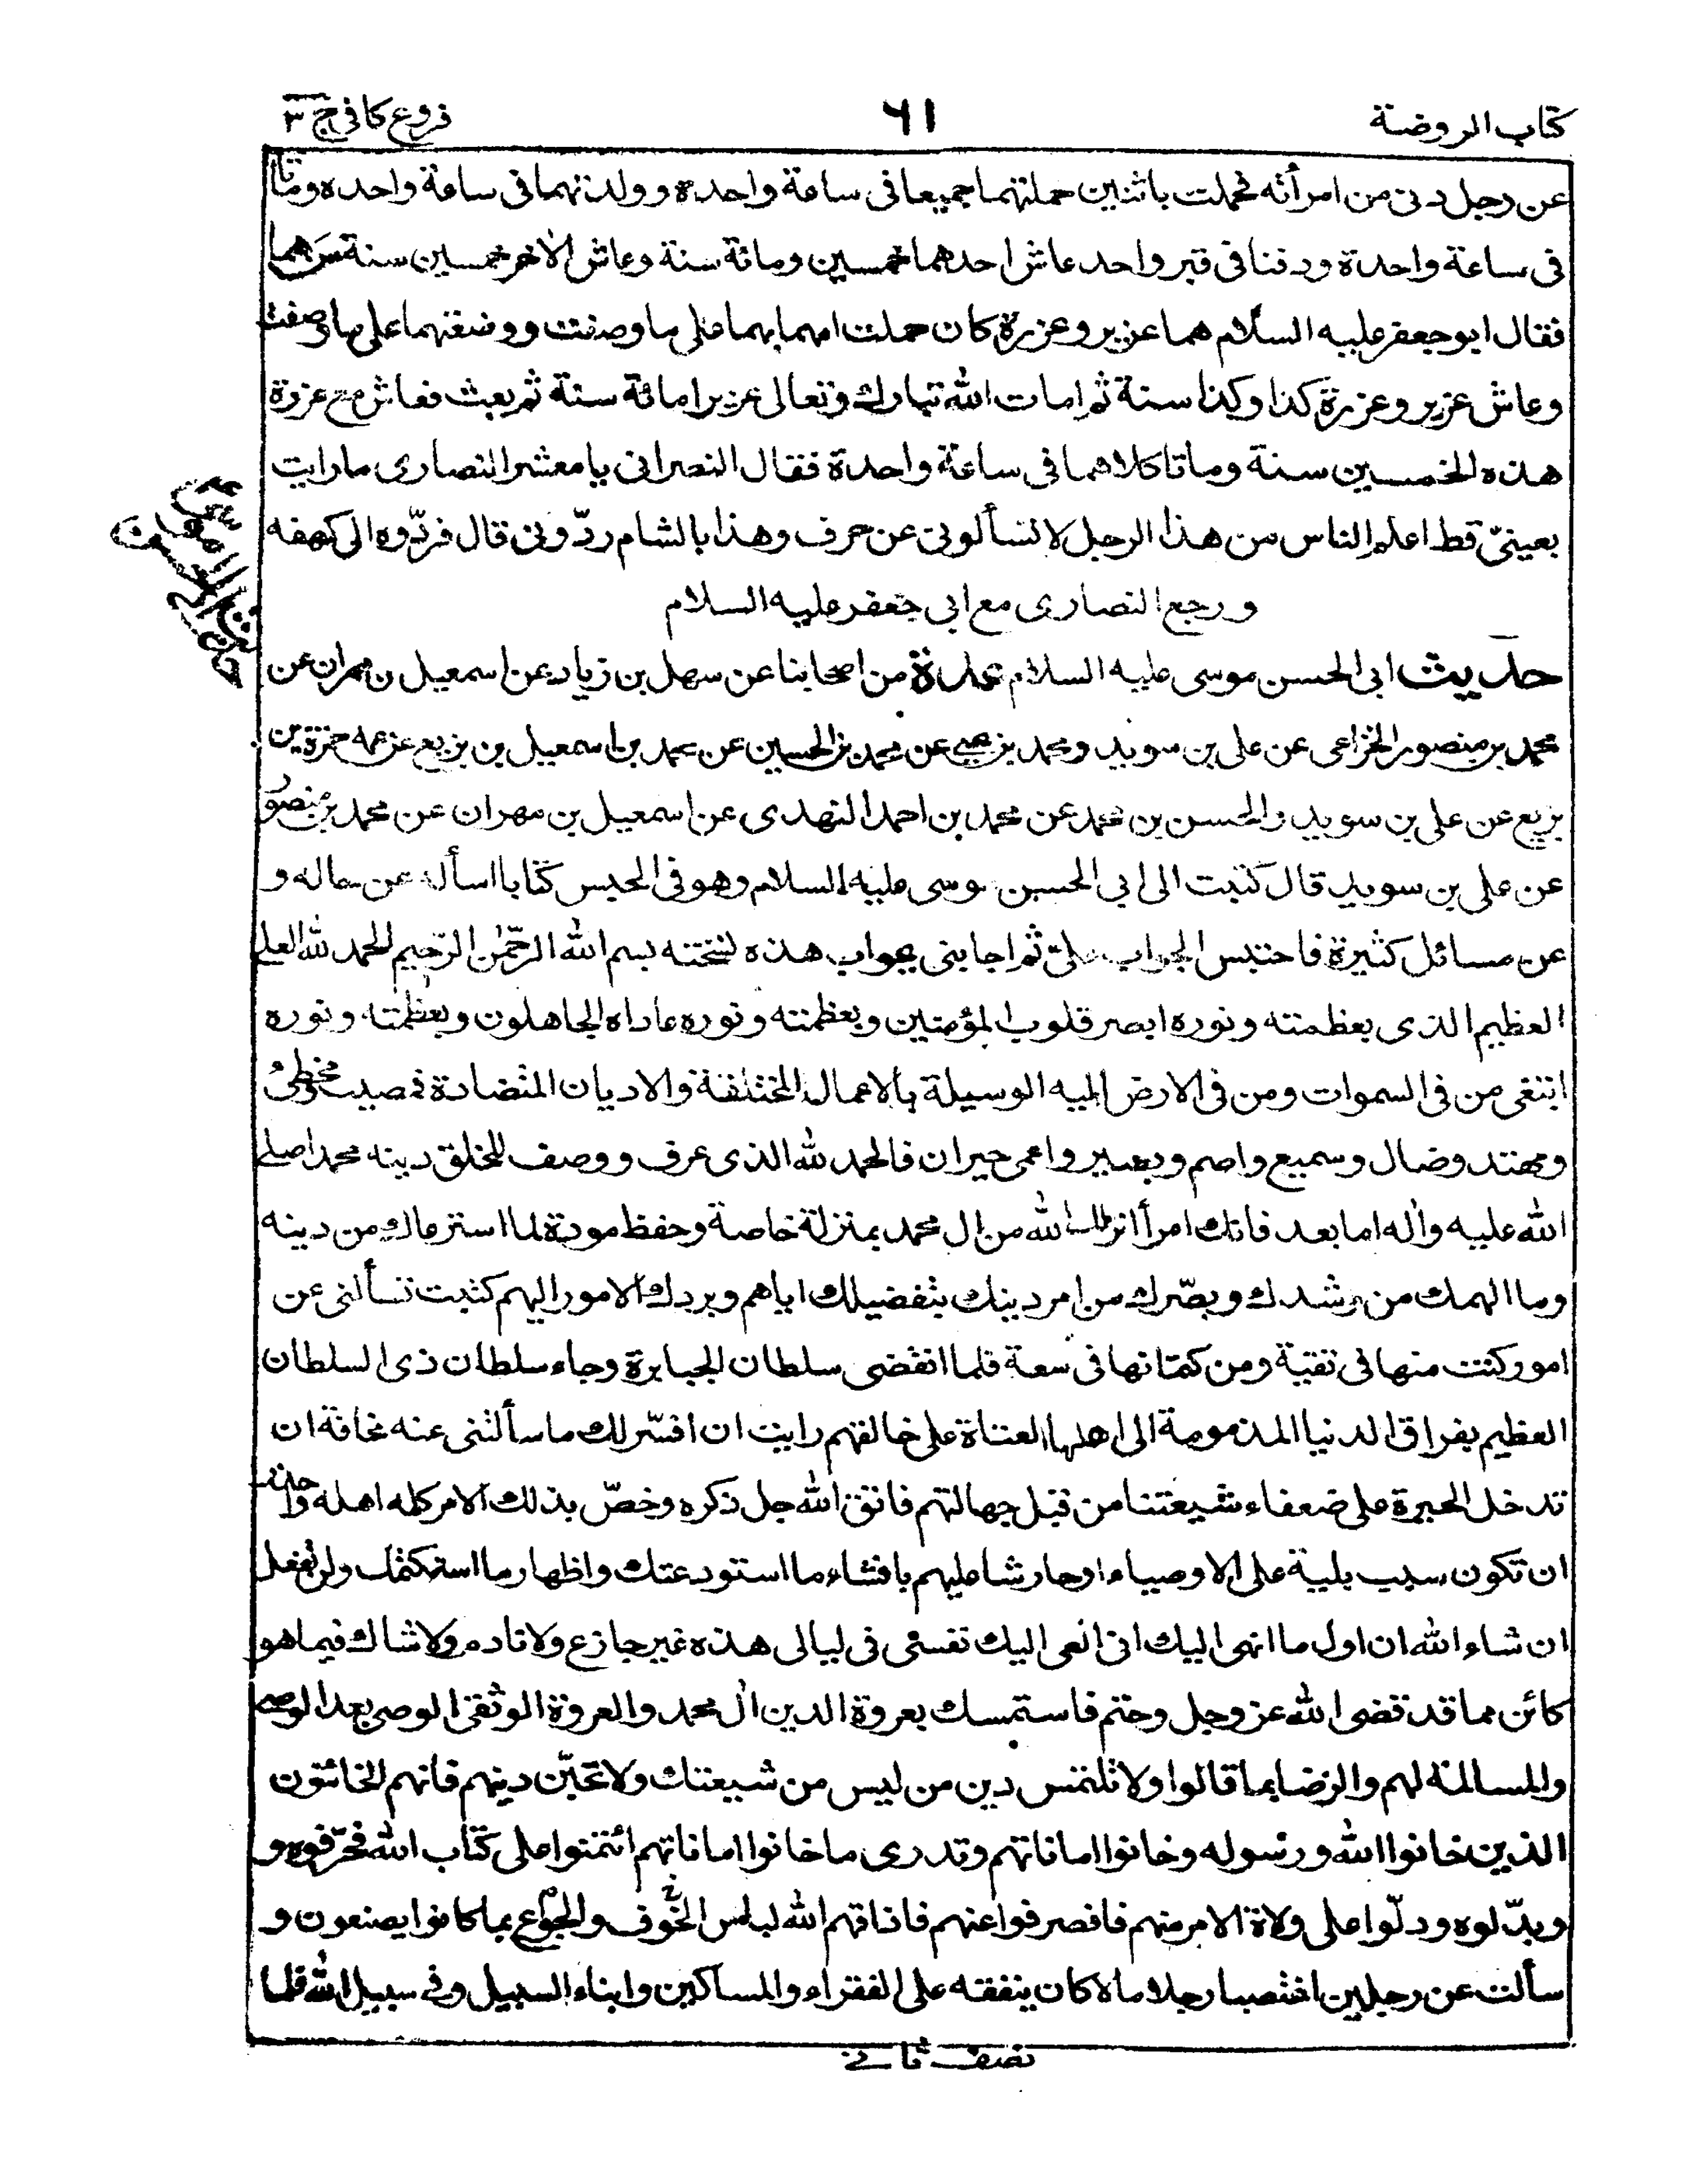 كتاب الروضة
٦١
فروع كافى ج ٣
عن رجل دنى من امرأته فحملت باثنين حملتهما جميعا فى ساعة واحده وولدتهما فى ساعة واحده وماتا
فى ساعة واحدة ودفنا فى قبر واحد عاش احدهما خمسين ومائة سنة وعاش الاخر خمسين سنة من هما
فقال ابو جعفر عليه السلام هما عزير وعزرة كان حملت امهما بهما على ما وصفت ووضعتهما على ما وصفت
وعاش عزير وعزرة كذا وكذا سنة ثم امات الله تبارك وتعالى عزيرا مائة سنة ثم بعث فعاش مع عزرة
هذه الخمسين سنة وماتا كلاهما فى ساعة واحدة فقال النصرانى يا معشر النصارى ما رايت
بعينىّ قط اعلم الناس من هذا الرجل لا تسألونى عن حرف وهذا بالشام ردّونى قال فردّوه الى كهفه
ورجع النصارى مع ابى جعفر عليه السلام
حديث ابى الحسن موسى عليه السلام عدة من اصحابنا عن سهل بن زياد عن اسمعيل بن مهران عن
محمد بن منصور الخزاعى عن على بن سويد ومحمد بن يحيى عن محمد بن الحسين عن محمد بن اسمعيل بن بزيع عن عمه حمزة بن
بزيع عن على بن سويد والحسن بن محمد عن محمد بن احمد النهدى عن اسمعيل بن مهران عن محمد بن منصور
عن على بن سويد قال كتبت الى ابى الحسن موسى عليه السلام وهو فى الحبس كتابا اسأله عن حاله و
عن مسائل كثيرة فاحتبس الجواب علىّ ثم اجابنى بجواب هذه نسخته بسم الله الرحمن الرحيم الحمد لله العلى
العظيم الذى بعظمته ونوره ابصر قلوب المؤمنين وبعظمته ونوره عاداه الجاهلون وبعظمته ونوره
ابتغى من فى السموات ومن فى الارض اليه الوسيلة بالاعمال المختلفة والاديان المتضادة فمصيب ومخطئ
ومهتد وضال وسميع واصم وبصير واعمى حيران فالحمد لله الذى عرف ووصف للخلق دينه محمدا صلى
الله عليه واله اما بعد فانك امرأ انزلك الله من ال محمد بمنزلة خاصة وحفظ مودة لما استرعاك من دينه
وما الهمك من رشدك وبصّرك من امر دينك بتفضيلك اياهم وبردك الامور اليهم كتبت تسألنى عن
امور كنت منها فى تقية ومن كتمانها فى سعة فلما انقضى سلطان الجبابرة وجاء سلطان ذى السلطان
العظيم بفراق الدنيا المذمومة الى اهلها العتاة على خالقهم رايت ان افسّر لك ما سألتنى عنه مخافة ان
تدخل الحيرة على ضعفاء شيعتنا من قبل جهالتهم فاتق الله جل ذكره وخصّ بذلك الامر كله اهله واحذر
ان تكون سبب بلية على الاوصياء او حارشا عليهم بافشاء ما استودعتك واظهار ما استكتمتك ولن تفعل
ان شاء الله ان اول ما انهى اليك انى انعى اليك نفسى فى ليالى هذه غير جازع ولا نادم ولا شاك فيما هو
كائن مما قد قضى الله عز وجل وحتم فاستمسك بعروة الدين ال محمد والعروة الوثقى الوصى بعد الوصى
والمسالمة لهم والرضا بما قالوا ولا تلتمس دين من ليس من شيعتك ولا تحبّن دينهم فانهم الخائنون
الذين خانوا الله ورسوله وخانوا اماناتهم وتدرى ما خانوا اماناتهم ائتمنوا على كتاب الله فحرّفوه و
وبدّلوه ودلّوا على ولاة الامر منهم فانصرفوا عنهم فاذاقهم الله لباس الخوف والجوع بما كانوا يصنعون و
سألت عن رجلين اغتصبا رجلا مالا كان ينفقه على الفقراء والمساكين وابناء السبيل وفى سبيل الله فلما
نصف ثانى